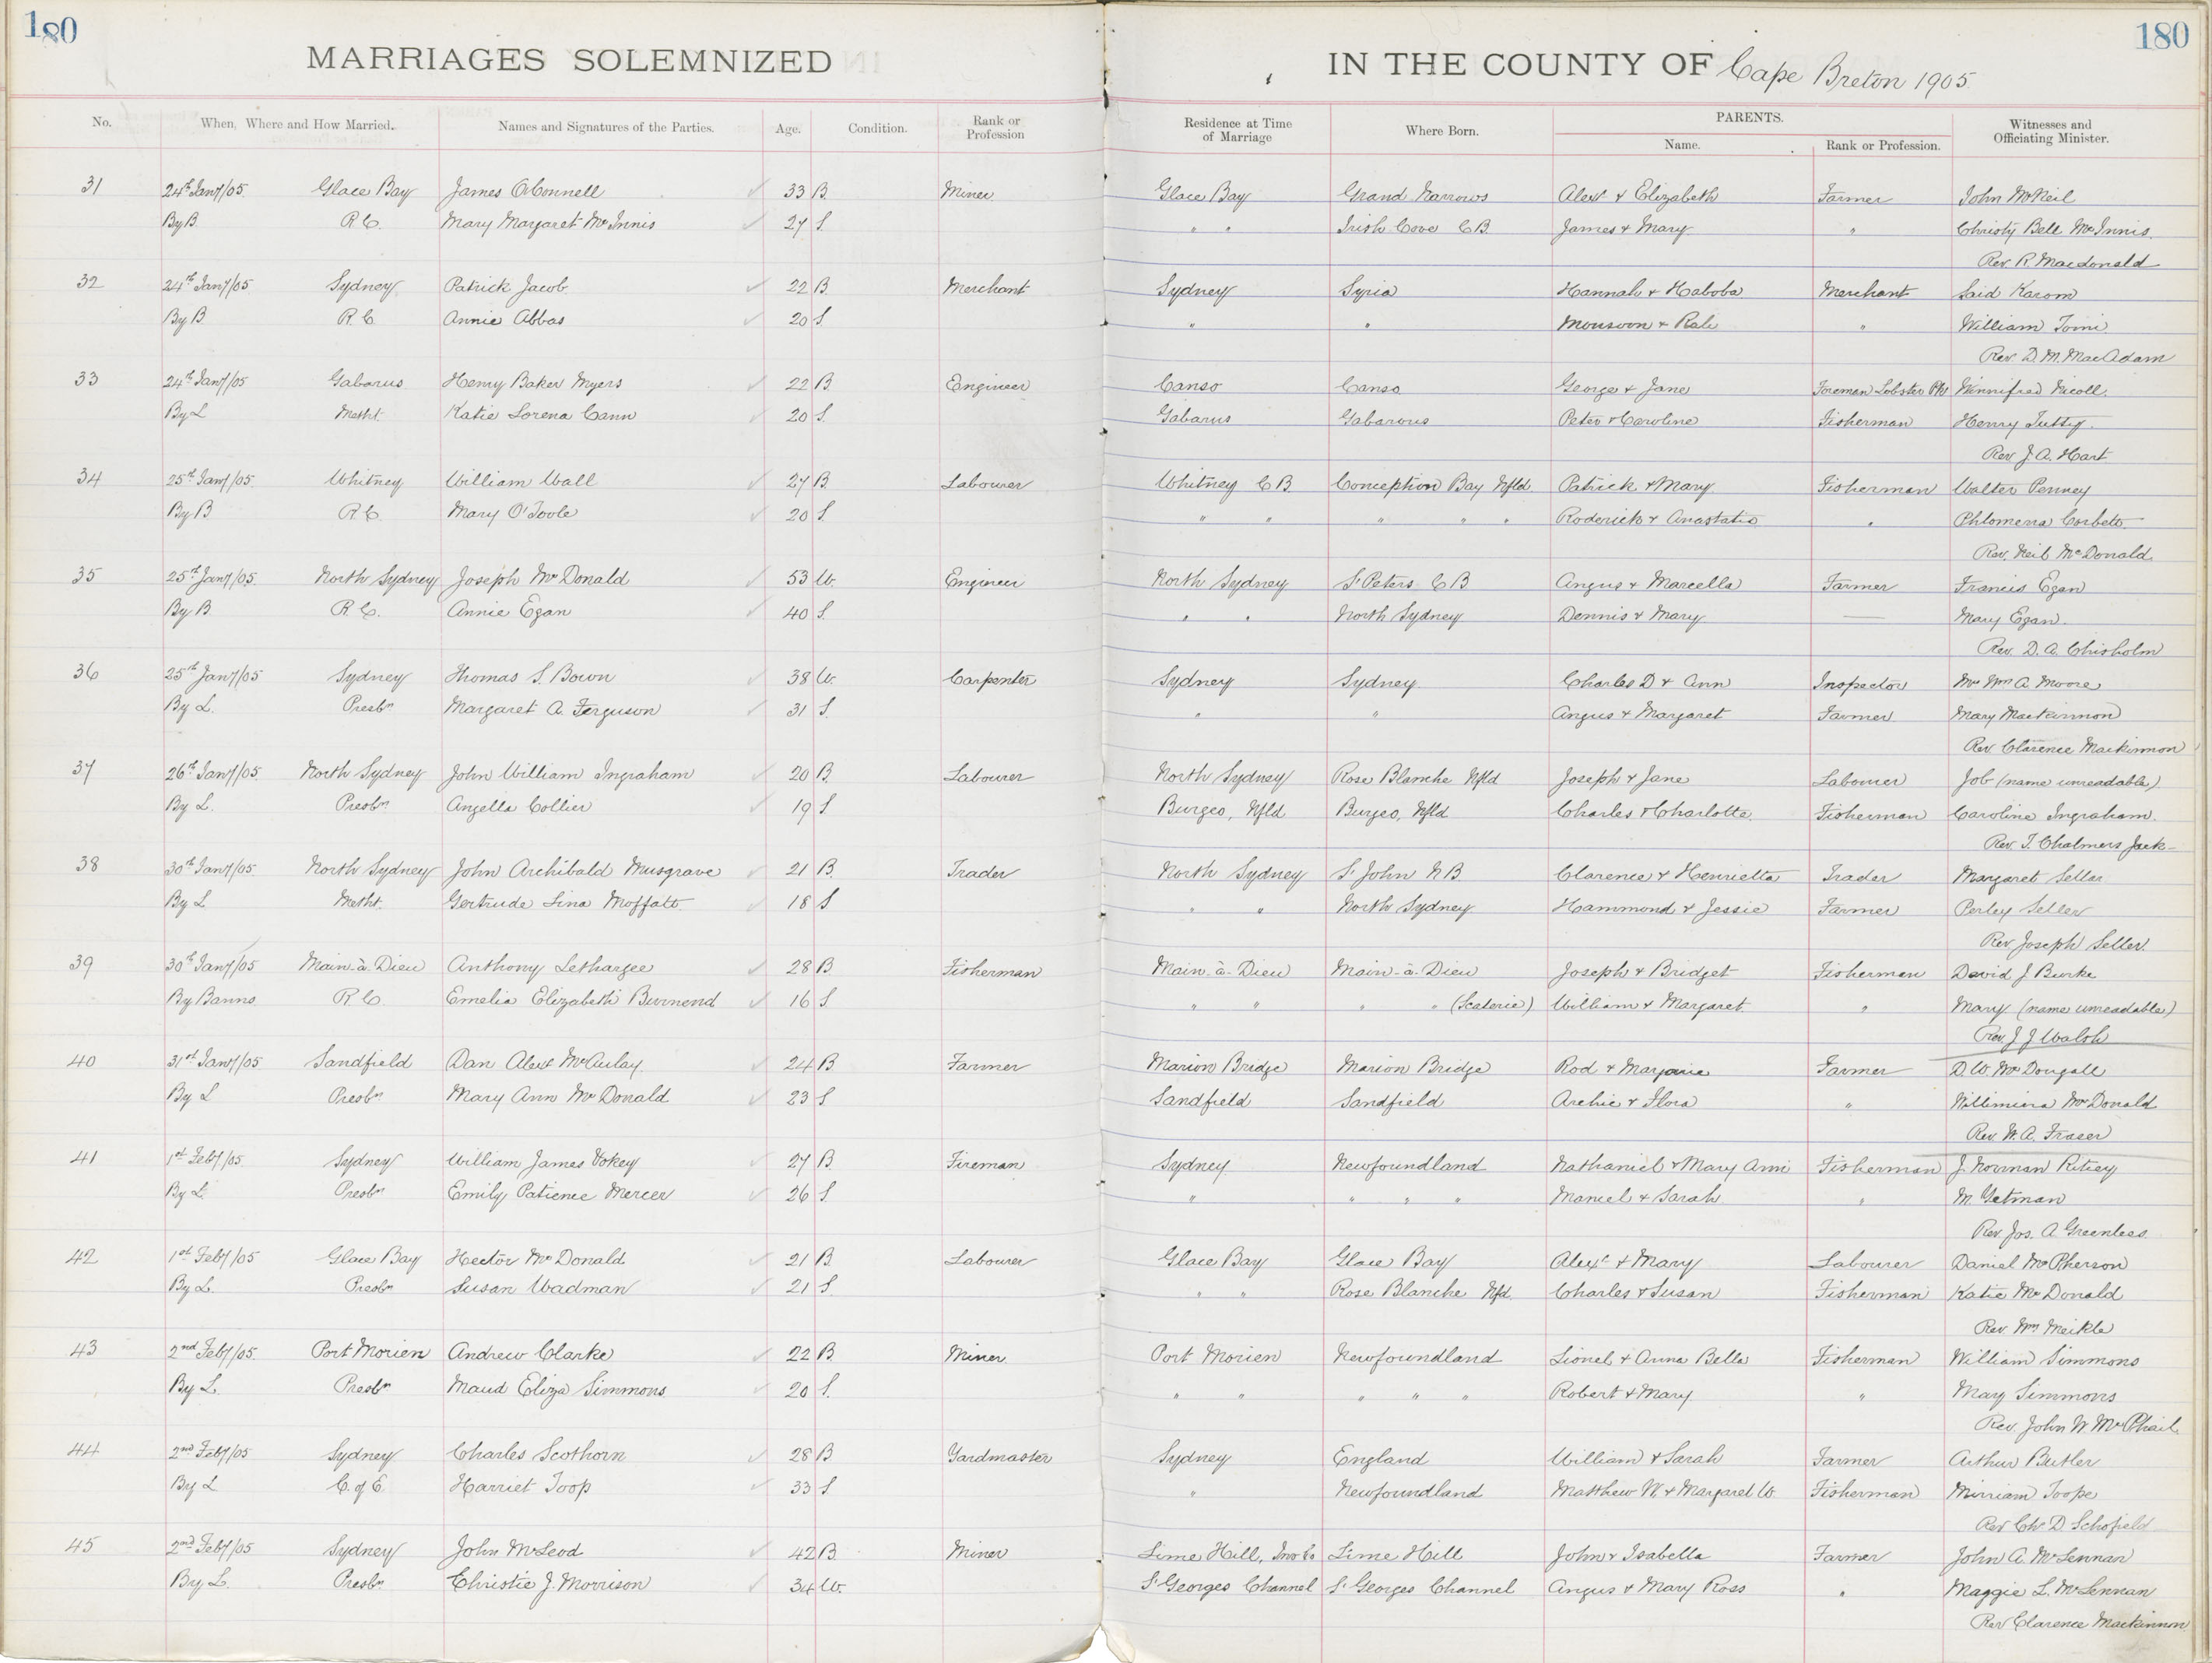 180
180
MARRIAGES SOLEMNIZED IN THE COUNTY OF Cape Breton 1905.
No. When, Where and How Married. Names and Signatures of the Parties. Age. Condition. Rank or Profession Residence at Time of Marriage Where Born. PARENTS. Name. Rank or Profession. Witnesses and Officiating Minister.
31 24th Jany/05. Glace Bay James O'Connell 33 B. Miner Glace Bay Grand Narrows Alext & Elizabeth Farmer John McNeil
By B. R.C. Mary Margaret McInnis 27 S. " " Irish Cove C.B. James & Mary " Christy Bell McInnis.
Rev. R. Macdonald
32 24th Jany/05 Sydney Patrick Jacob 22 B. Merchant Sydney Syria Hannah & Haboba Merchant Said Karom
By B. R.C. Annie Abbas 20 S. " " Monsoon & Rale " William Tomi
Rev. D. M. MacAdam
33 24th Jany/05 Gabarus Henry Baker Myers 22 B. Engineer Canso Canso George & Jane Foreman Lobster Winnifred Nicoll.
By L Metht. Katie Lorena Cann 20 S. Gabarus Gabarous Peter & Caroline Fisherman Henry Tutty.
Rev J. A. Hart
34 25th Jany/05. Whitney William Wall 27 B. Labourer Whitney C.B. Conception Bay Nfld. Patrick & Mary Fisherman Walter Penney
By B R.C. Mary O'Toole 20 S. " " " " " Roderick & Anastatia " Phlomena Corbett
Rev. Neil McDonald
35 25th Jany/05. North Sydney Joseph McDonald 53 W. Engineer North Sydney St Peters C B Angus & Marcella Farmer Francis Egan
By B R.C. Annie Egan 40 S. " " North Sydney Dennis & Mary — Mary Egan.
Rev. D. A. Chisholm
36 25th Jany/05 Sydney Thomas S. Bown 38 W. Carpenter Sydney Sydney Charles D & Ann Inspector Mrs Wm A. Moore
By L. Presbn Margaret A. Ferguson 31 S. " " Angus & Margaret Farmer Mary MacKinnon
Rev. Clarence Mackinnon
37 26th Jany/05. North Sydney John William Ingraham 20 B. Labourer North Sydney Rose Blanche Nfld Joseph & Jane Labourer Job (name unreadable)
By L. Presbn Angella Collier 19 S. Burgeo, Nfld Burgeo, Nfld Charles & Charlotte. Fisherman Caroline Ingraham.
Rev. T. Chalmers Jack
38 30th Jany/05. North Sydney John Archibald Musgrave 21 B. Trader North Sydney St John N.B. Clarence & Henrietta Trader Margaret Seller
By L Metht. Gertrude Lina Moffatt. 18 S " " North Sydney Hammond & Jessie Farmer Perley Seller
Rev Joseph Seller.
39 30th Jany/05 Main-à-Dieu Anthony Lethargee 28 B. Fisherman Main-à-Dieu Main-à-Dieu Joseph & Bridget Fisherman David J Burke
By Banns R C Emelia Elizabeth Burnend 16 S " " " " (Scaterie) William & Margaret. " Mary (name unreadable)
Rev. J J Walsh
40 31st Jany/05 Sandfield Dan Alext McAulay. 24 B. Farmer Marion Bridge Marion Bridge Rod & Marjorie Farmer D. W. McDougall
By L Presbn Mary Ann McDonald 23 S Sandfield Sandfield Archie & Flora " Willimina McDonald
Rev. W. A. Fraser
41 1st Feby/05 Sydney William James Vokey 27 B. Fireman Sydney Newfoundland Nathaniel & Mary Ann Fisherman J. Norman Ritcey
By L. Presbn Emily Patience Mercer 26 S. " " " " Manuel & Sarah " M. Getman
Rev. Jos. A Greenlees
42 1st Feby/05 Glace Bay Hector McDonald 21 B. Labourer Glace Bay Glace Bay Alext & Mary Labourer Daniel McPherson
By L. Presbn Susan Wadman 21 S. " " Rose Blanche Nfd. Charles & Susan Fisherman Katie McDonald
Rev. Wm Meikle
43 2nd Feby/05. Port Morien Andrew Clarke 22 B. Miner Port Morien Newfoundland Lionel & Anna Bella Fisherman William Simmons
By L. Presbn Maud Eliza Simmons 20 S. " " " " " Robert & Mary " Mary Simmons
Rev. John W McPhail
44 2nd Feby/05 Sydney Charles Scothorn 28 B Yardmaster Sydney England William & Sarah Farmer Arthur Butler
By L C. of E. Harriet Toop 33 S " Newfoundland Matthew W. & Margaret W. Fisherman Mirriam Toope
Rev Ch D Schofield
45 2nd Feby/05 Sydney John McLeod 42 B. Miner Lime Hill, Inv Co Lime Hill John & Isabella Farmer John A. McLennan
By L. Presbn Christie J. Morrison 34 W. St Georges Channel St Georges Channel Angus & Mary Ross " Maggie L. McLennan
Rev Clarence Mackinnon